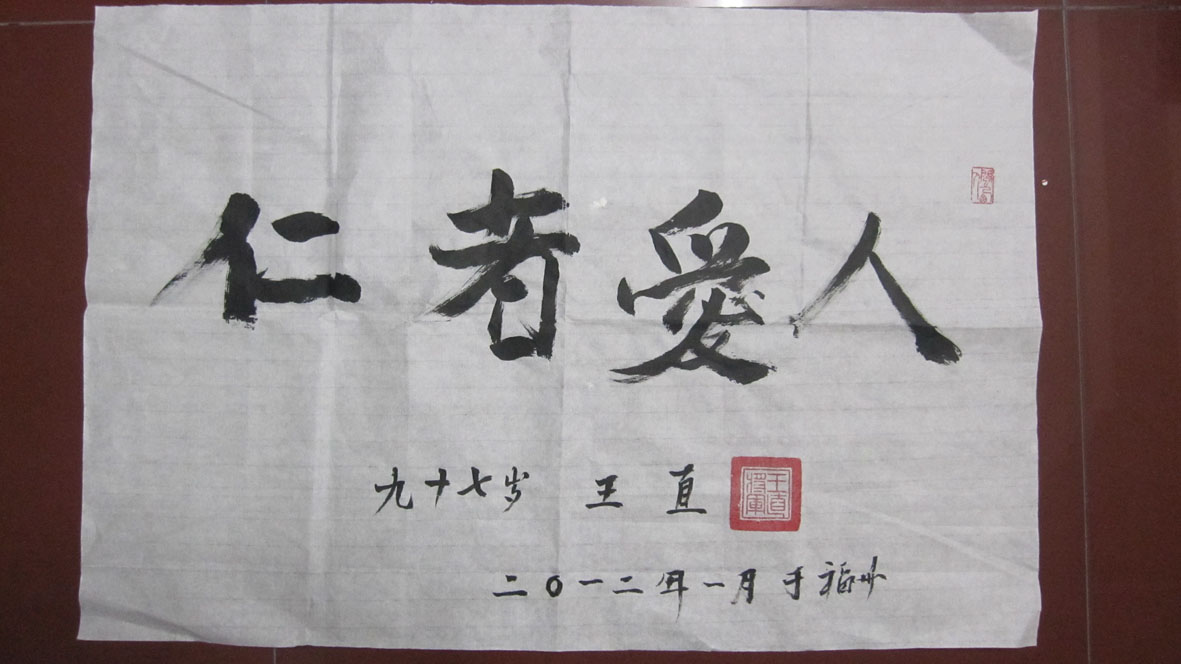 仁者愛人
九十七岁 王直
王直将軍
二〇一二年一月于福州